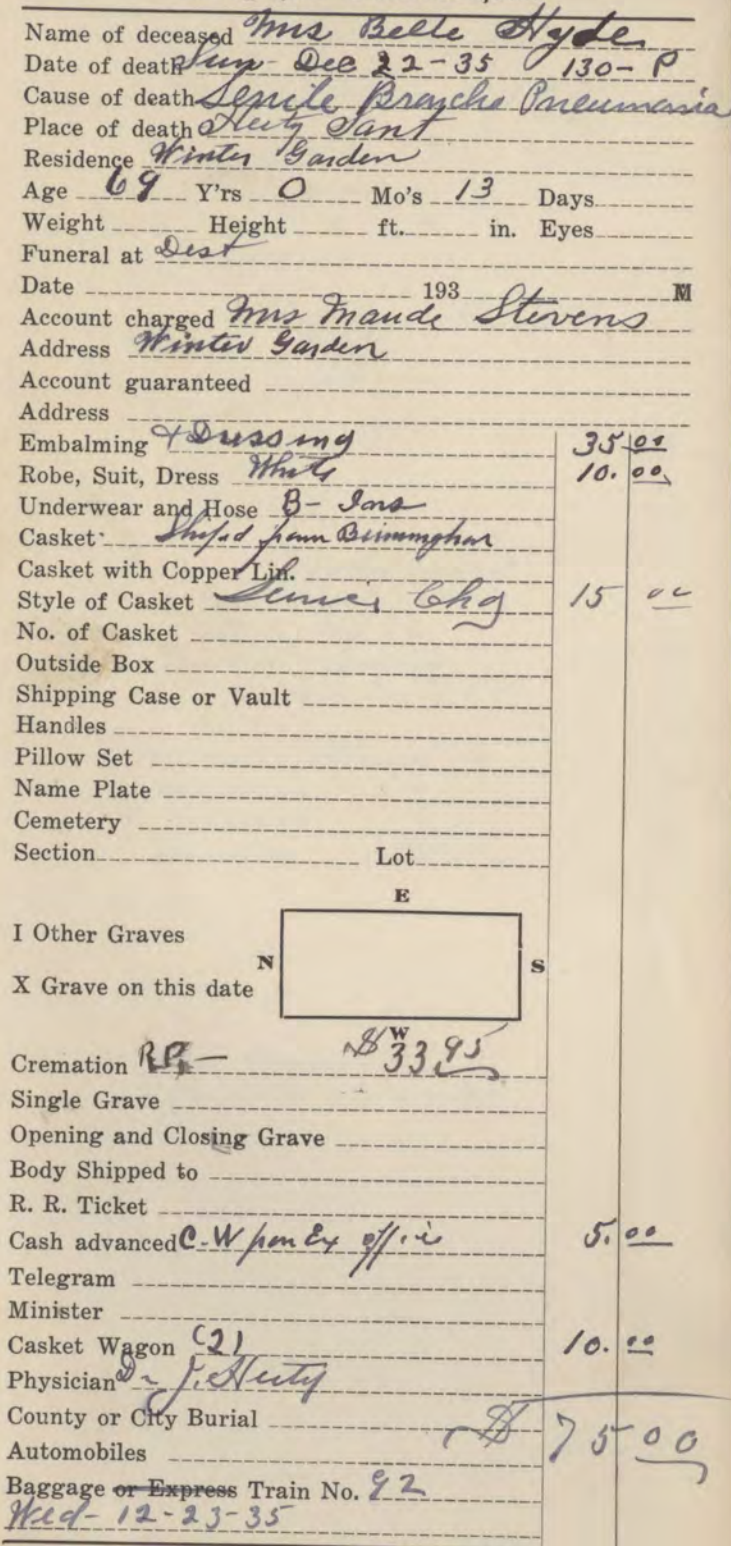 Name of deceased Mrs Belle Hyde
Date of death Sun - Dec 22-35 130- P
Cause of death Senile Broncho Pneumonia
Place of death Sant
Residence Winter Garden
Age 69 Y'rs 0 Mo's 13 Days
Weight Height ft. in. Eyes
Funeral at Dest
Date 193 M
Account charged Mrs Maude Stevens
Address Winter Garden
Account guaranteed
Address
Embalming & Dressing 35 00
Robe, Suit, Dress White 10. 00
Underwear and Hose B-
Casket Birmingham
Casket with Copper Lin.
Style of Casket Service Chg 15 00
No. of Casket
Outside Box
Shipping Case or Vault
Handles
Pillow Set
Name Plate
Cemetery
Section Lot
E
I Other Graves
N S
X Grave on this date
W
Cremation $33.95
Single Grave
Opening and Closing Grave
Body Shipped to
R. R. Ticket
Cash advanced C-W Ex office 5. 00
Telegram
Minister
Casket Wagon (2) 10. 00
Physician Dr J.
County or City Burial $ 75 00
Automobiles
Baggage or Express Train No. 92
Wed- 12-23-35